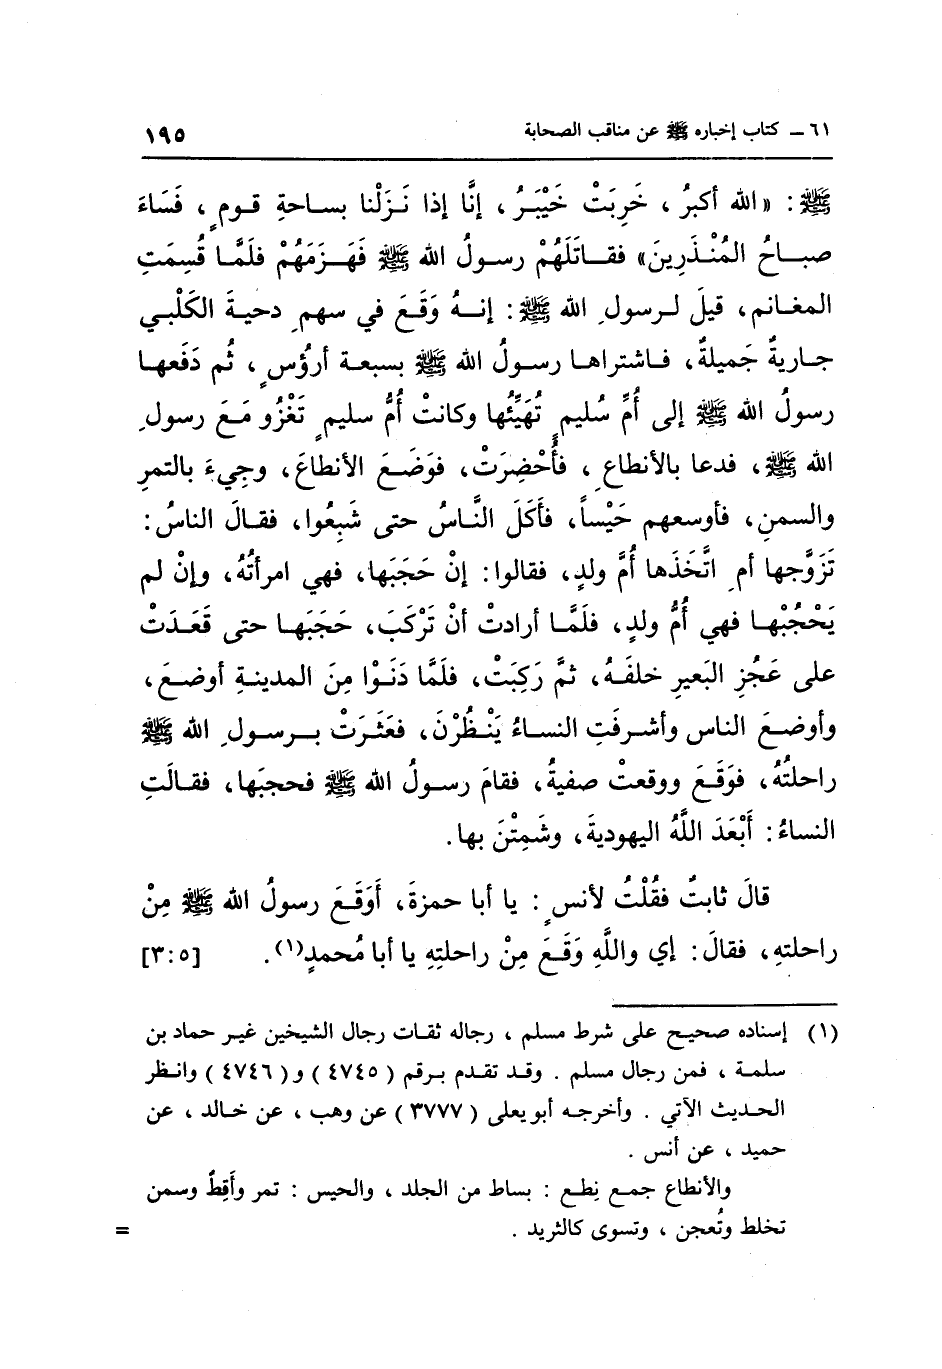 ٦١ ـ كتاب إخباره ﷺ عن مناقب الصحابة ١٩٥
ﷺ: «الله أكبرُ، خَرِبَتْ خَيْبَرُ، إنَّا إذا نَزَلْنا بساحةِ قومٍ، فَسَاءَ
صباحُ المُنْذَرِينَ» فقاتَلَهُمْ رسولُ الله ﷺ فَهَزَمَهُمْ فلَمَّا قُسِمَتِ
المغانم، قيلَ لرسولِ الله ﷺ: إنهُ وَقَعَ في سهمِ دحيةَ الكَلْبي
جاريةٌ جَميلةٌ، فاشتراها رسولُ الله ﷺ بسبعة أرؤُسٍ، ثُم دَفَعها
رسولُ الله ﷺ إلى أُمِّ سُليمٍ تُهَيِّئُها وكانتْ أُمُّ سليمٍ تَغْزُو مَعَ رسولِ
الله ﷺ، فدعا بالأنطاعِ، فأُحْضِرَتْ، فوَضَعَ الأنطاعَ، وجِيءَ بالتمرِ
والسمنِ، فأوسعهم حَيْساً، فأَكَلَ النَّاسُ حتى شَبِعُوا، فقالَ الناسُ:
تَزَوَّجها أمِ اتَّخَذَها أُمَّ ولدٍ، فقالوا: إنْ حَجَبَها، فهي امرأتُهُ، وإنْ لم
يَحْجُبْها فهي أُمُّ ولدٍ، فلَمَّا أرادتْ أنْ تَرْكَبَ، حَجَبَها حتى قَعَدَتْ
على عَجُزِ البَعيرِ خلفَهُ، ثمَّ رَكِبَتْ، فلَمَّا دَنَوْا مِنَ المدينةِ أوضعَ،
وأوضعَ الناس وأشرفَتِ النساءُ يَنْظُرْنَ، فعَثَرَتْ برسولِ الله ﷺ
راحلتُهُ، فوَقَعَ ووقعتْ صفيةُ، فقامَ رسولُ الله ﷺ فحجبَها، فقالَتِ
النساءُ: أَبْعَدَ اللَّهُ اليهوديةَ، وشَمِتْنَ بها.
قالَ ثابتٌ فقُلْتُ لأنسٍ: يا أبا حمزةَ، أَوَقَعَ رسولُ الله ﷺ مِنْ
راحلتهِ، فقالَ: إي واللَّهِ وَقَعَ مِنْ راحلتِهِ يا أبا مُحمدٍ(١). [٥:٣]
(١) إسناده صحيح على شرط مسلم، رجاله ثقات رجال الشيخين غير حماد بن
سلمة، فمن رجال مسلم. وقد تقدم برقم (٤٧٤٥) و(٤٧٤٦) وانظر
الحديث الآتي. وأخرجه أبو يعلى (٣٧٧٧) عن وهب، عن خالد، عن
حميد، عن أنس.
والأنطاع جمع نِطَع: بساط من الجلد، والحيس: تمر وأَقِطٌ وسمن
تخلط وتُعجن، وتسوى كالثريد. =